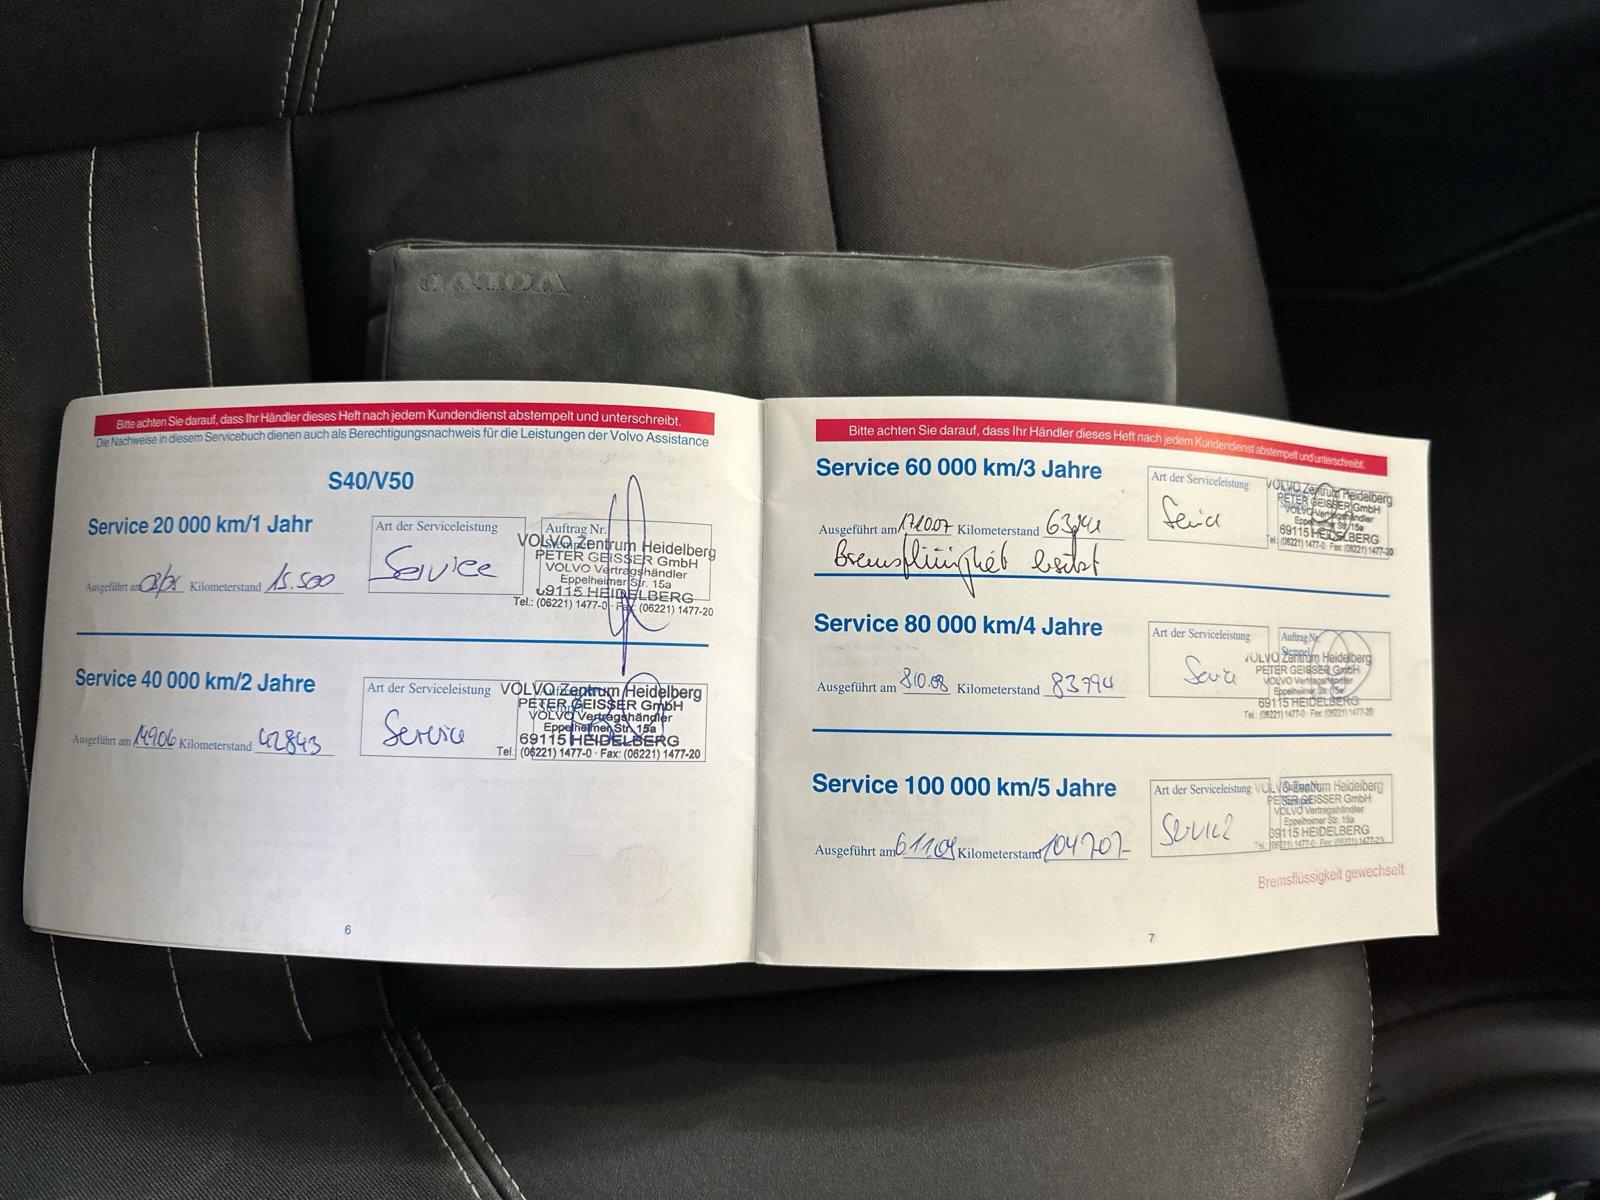 VOLVO
Bitte achten Sie darauf, dass Ihr Händler dieses Heft nach jedem Kundendienst abstempelt und unterschreibt.
Die Nachweise in diesem Servicebuch dienen auch als Berechtigungsnachweis für die Leistungen der Volvo Assistance
S40/V50
Service 20 000 km/1 Jahr
Ausgeführt am Kilometerstand 15.500
Art der Serviceleistung
Service
Auftrag Nr.
VOLVO Zentrum Heidelberg
PETER GEISSER GmbH
VOLVO Vertragshändler
Eppelheimer Str. 15a
69115 HEIDELBERG
Tel.: (06221) 1477-0 · Fax: (06221) 1477-20
Service 40 000 km/2 Jahre
Ausgeführt am Kilometerstand 42843
Art der Serviceleistung
Service
VOLVO Zentrum Heidelberg
PETER GEISSER GmbH
VOLVO Vertragshändler
Eppelheimer Str. 15a
69115 HEIDELBERG
Tel.: (06221) 1477-0 · Fax: (06221) 1477-20
6
Bitte achten Sie darauf, dass Ihr Händler dieses Heft nach jedem Kundendienst abstempelt und unterschreibt.
Service 60 000 km/3 Jahre
Ausgeführt am Kilometerstand
Bremsflüssigkeit
Art der Serviceleistung
Service
VOLVO Zentrum Heidelberg
PETER GEISSER GmbH
VOLVO Vertragshändler
Eppelheimer Str. 15a
69115 HEIDELBERG
Tel.: (06221) 1477-0 · Fax: (06221) 1477-20
Service 80 000 km/4 Jahre
Ausgeführt am 8.10.08 Kilometerstand 83794
Art der Serviceleistung
Service
Auftrag Nr.
Stempel
VOLVO Zentrum Heidelberg
PETER GEISSER GmbH
VOLVO Vertragshändler
Eppelheimer Str. 15a
69115 HEIDELBERG
Tel.: (06221) 1477-0 · Fax: (06221) 1477-20
Service 100 000 km/5 Jahre
Ausgeführt am 6.11.09 Kilometerstand 104707-
Art der Serviceleistung
Service
VOLVO Zentrum Heidelberg
PETER GEISSER GmbH
VOLVO Vertragshändler
Eppelheimer Str. 15a
69115 HEIDELBERG
Tel.: (06221) 1477-0 · Fax: (06221) 1477-20
Bremsflüssigkeit gewechselt
7